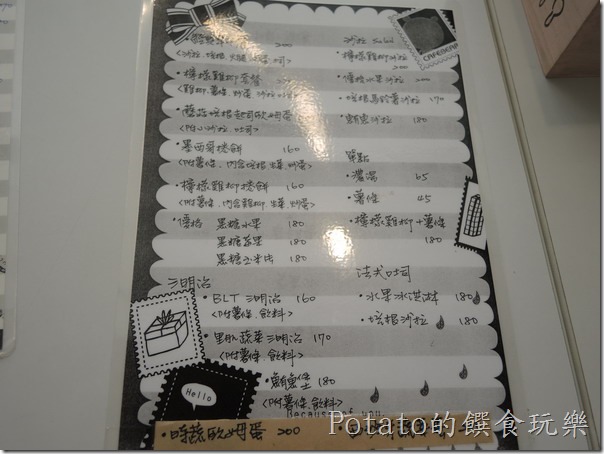 200
沙拉 Salad
・檸檬雞柳沙拉 200
・檸檬雞柳套餐
・優格水果沙拉 200
・培根馬鈴薯沙拉 170
・蘑菇培根起司歐姆蛋
<附小沙拉.吐司>
・鮪魚沙拉 180
・墨西哥捲餅 160
<附薯條.內含培根.生菜.炒蛋>
單點
・濃湯 65
・檸檬雞柳捲餅 160
<附薯條.內含雞柳.生菜.炒蛋>
・薯條 45
・檸檬雞柳+薯條 180
・優格 黑糖水果 180
黑糖蘋果 180
黑糖玉米片 180
三明治
法式吐司
・BLT 三明治 160
<附薯條.飲料>
・水果冰淇淋 180
・培根沙拉 180
・里肌蔬菜三明治 170
<附薯條.飲料>
・鮪魚堡 180
<附薯條.飲料>
Hello
Because of you
・時蔬歐姆蛋 200
CAFENCAFE
Potato的饌食玩樂